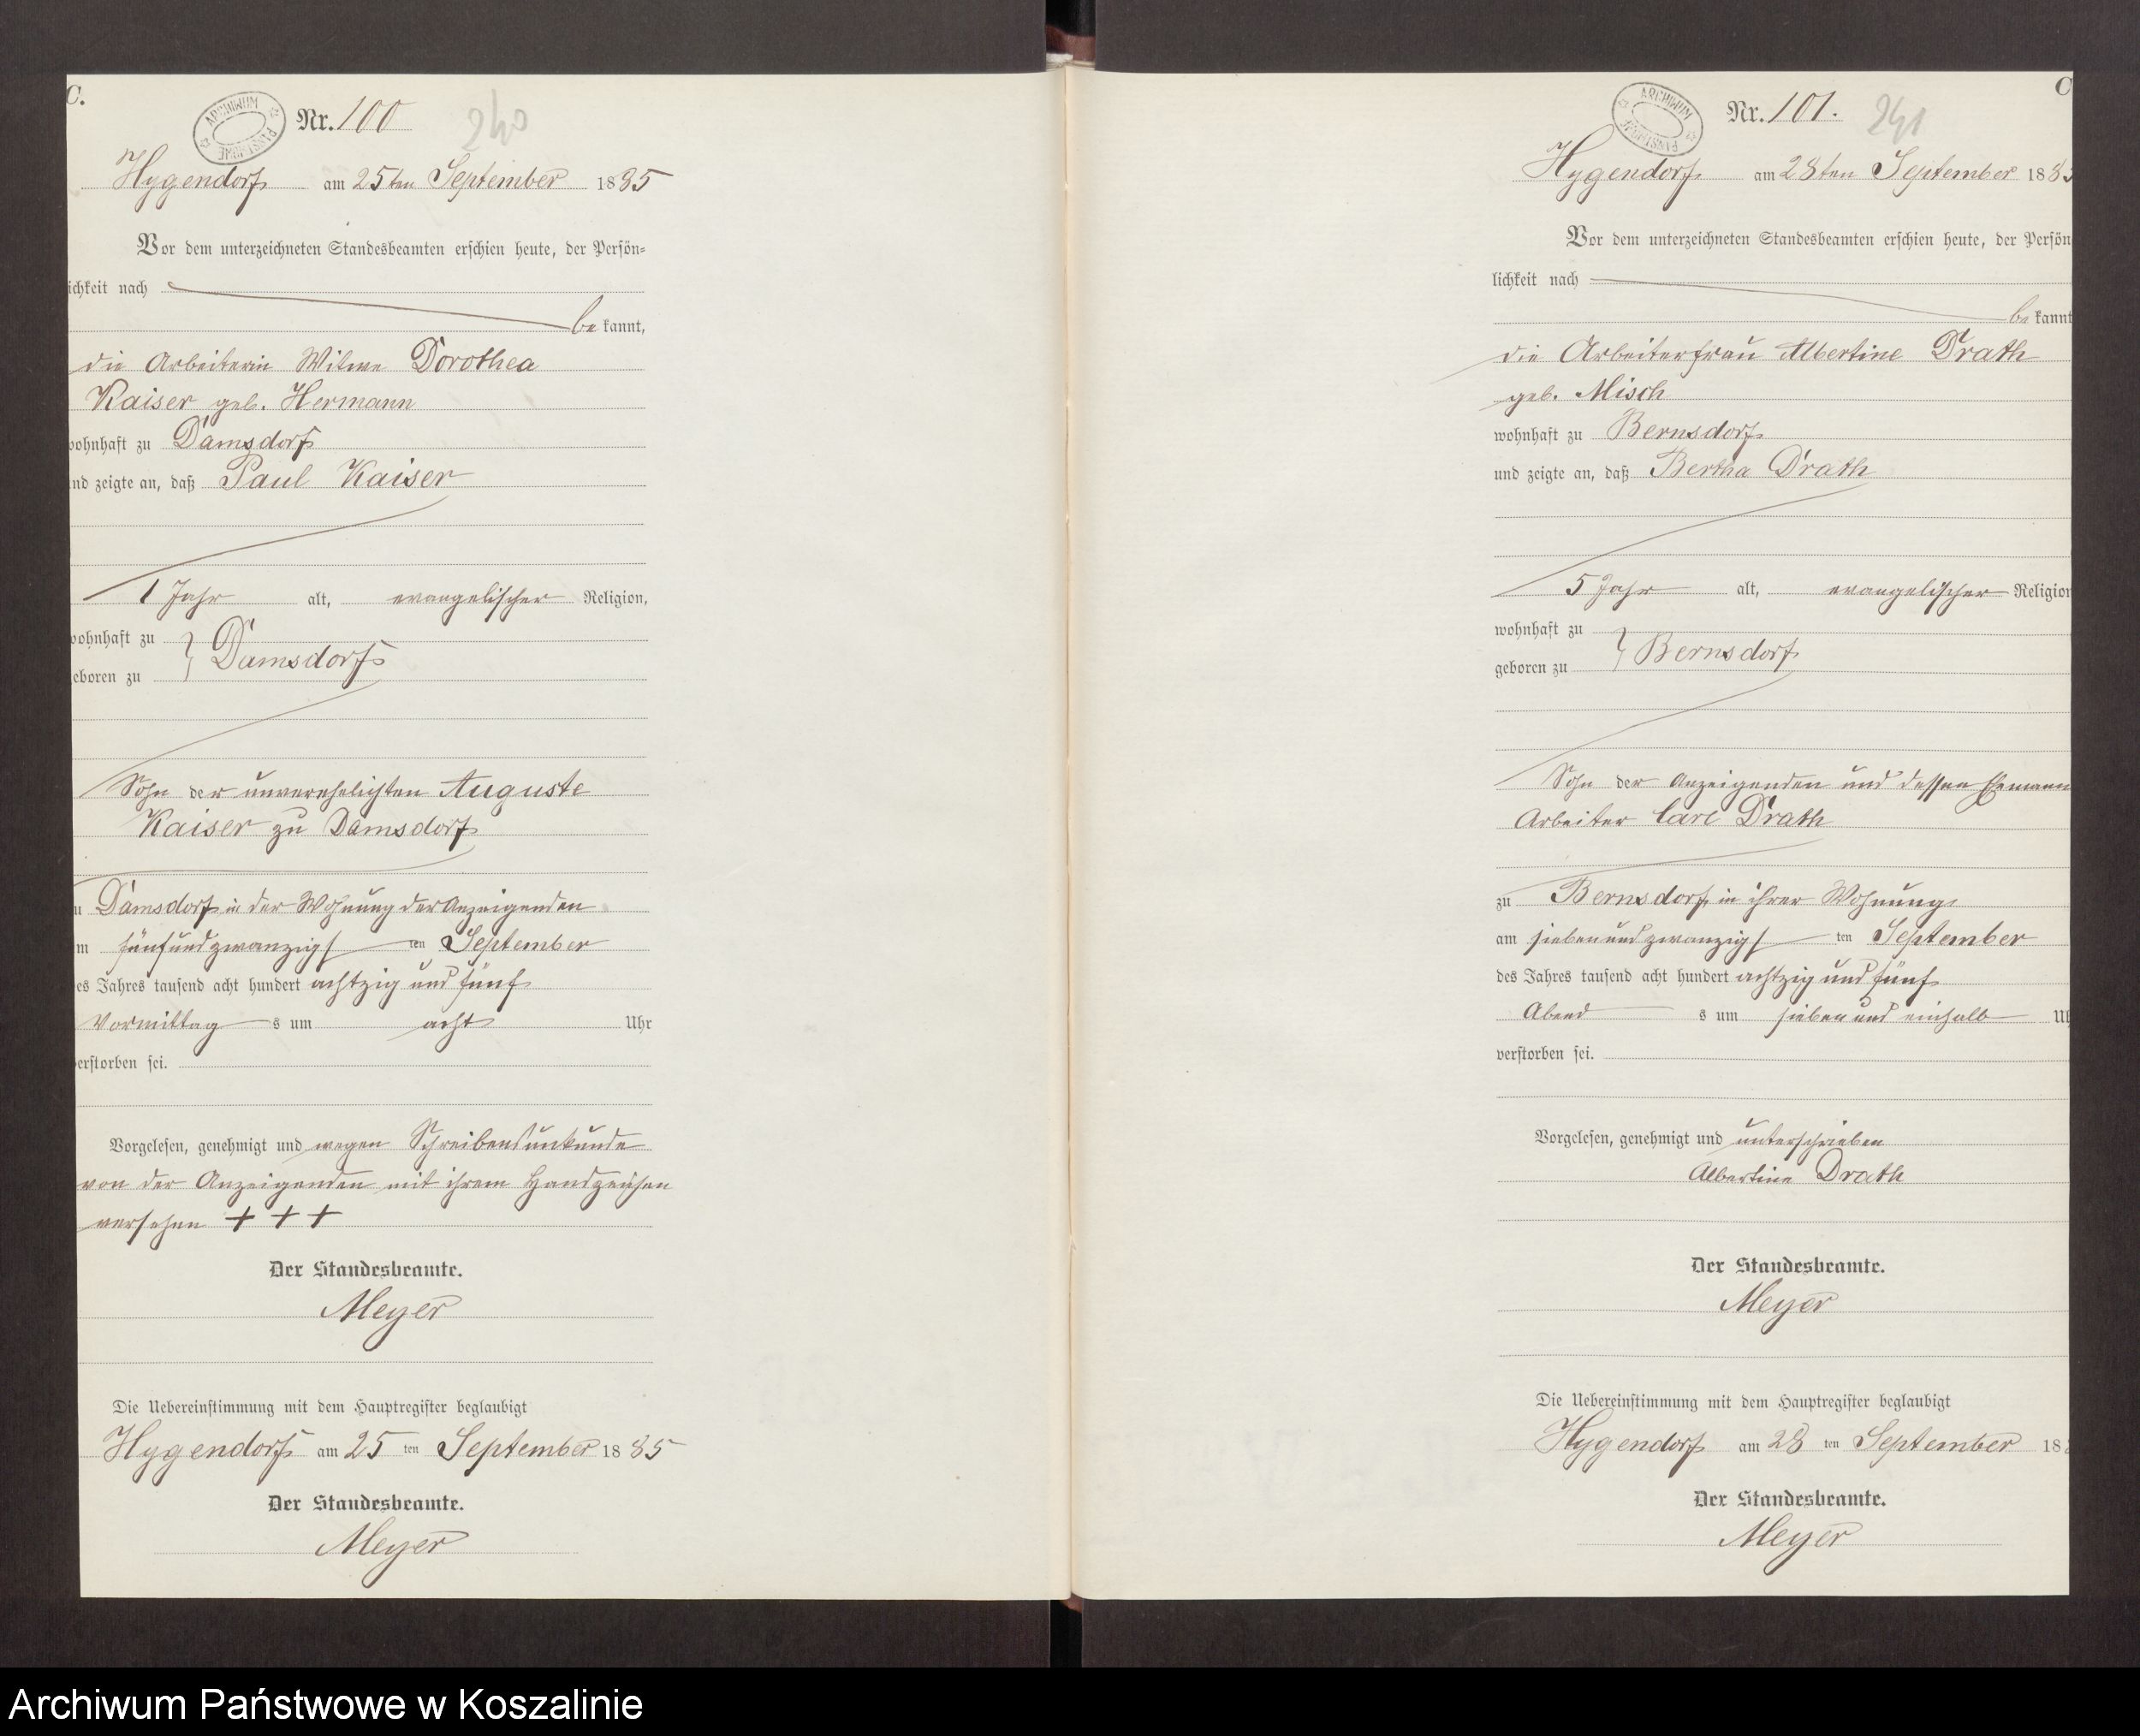 C.
ARCHIWUM PAŃSTWOWE
Nr. 100
240
Hygendorf am 25ten September 1885
Vor dem unterzeichneten Standesbeamten erschien heute, der Persön=
ichkeit nach
be kannt,
die Arbeiterin Witwe Dorothea
Kaiser geb. Hermann
wohnhaft zu Damsdorf
nd zeigte an, daß Paul Kaiser
1 Jahr alt, evangelischer Religion,
wohnhaft zu
eboren zu } Damsdorf
Sohn der unverehelichten Auguste
Kaiser zu Damsdorf
u Damsdorf in der Wohnung der Anzeigenden
m fünfundzwanzigs ten September
es Jahres tausend acht hundert achtzig und fünf
Vormittag s um acht Uhr
verstorben sei.
Vorgelesen, genehmigt und wegen Schreibensunkunde
von der Anzeigenden mit ihrem Handzeichen
versehen + + +
Der Standesbeamte.
Meyer
Die Uebereinstimmung mit dem Hauptregister beglaubigt
Hygendorf am 25 ten September 1885
Der Standesbeamte.
Meyer
C
ARCHIWUM PAŃSTWOWE
Nr. 101.
241
Hygendorf am 28ten September 1885
Vor dem unterzeichneten Standesbeamten erschien heute, der Persön
lichkeit nach
be kannt
die Arbeiterfrau Albertine Drath
geb. Misch
wohnhaft zu Bernsdorf
und zeigte an, daß Bertha Drath
5 Jahr alt, evangelischer Religion
wohnhaft zu
geboren zu } Bernsdorf
Sohn der Anzeigenden und dessen Ehemann
Arbeiter Carl Drath
zu Bernsdorf in ihrer Wohnung
am siebenundzwanzigs ten September
des Jahres tausend acht hundert achtzig und fünf
Abend s um sieben und einhalb Uh
verstorben sei.
Vorgelesen, genehmigt und unterschrieben
Albertine Drath
Der Standesbeamte.
Meyer
Die Uebereinstimmung mit dem Hauptregister beglaubigt
Hygendorf am 28 ten September 188
Der Standesbeamte.
Meyer
Archiwum Państwowe w Koszalinie